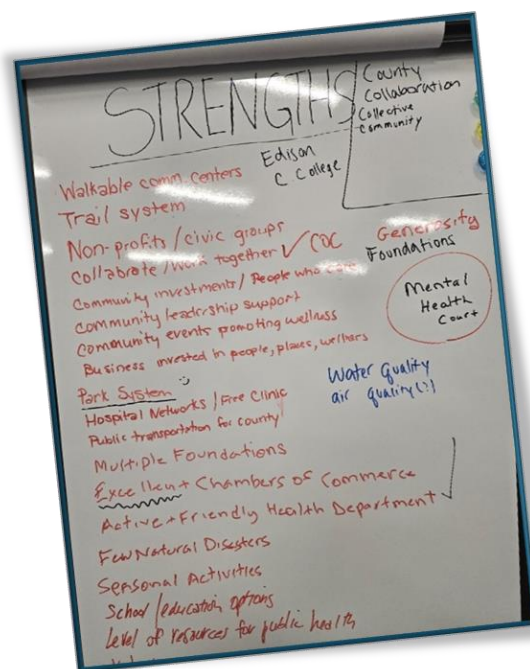 STRENGTHS
County
Collaboration
Collective
Community
Edison
C. College
Walkable comm. centers
Trail system
Non-profits/civic groups
Collaborate/work together ✓ COC
Generosity
Foundations
Community investments/People who
Community leadership support
Community events pomoting wellness
Business invested in people, places,
Mental
Health
Court
Water Quality
air quality(?)
Park System
Hospital Networks/Free Clinic
Public transportation for county
Multiple Foundations
Excellent Chambers of Commerce
Active + Friendly Health Department ✓
Few Natural Disasters
Seasonal Activities
School/education options
Level of resources for public health